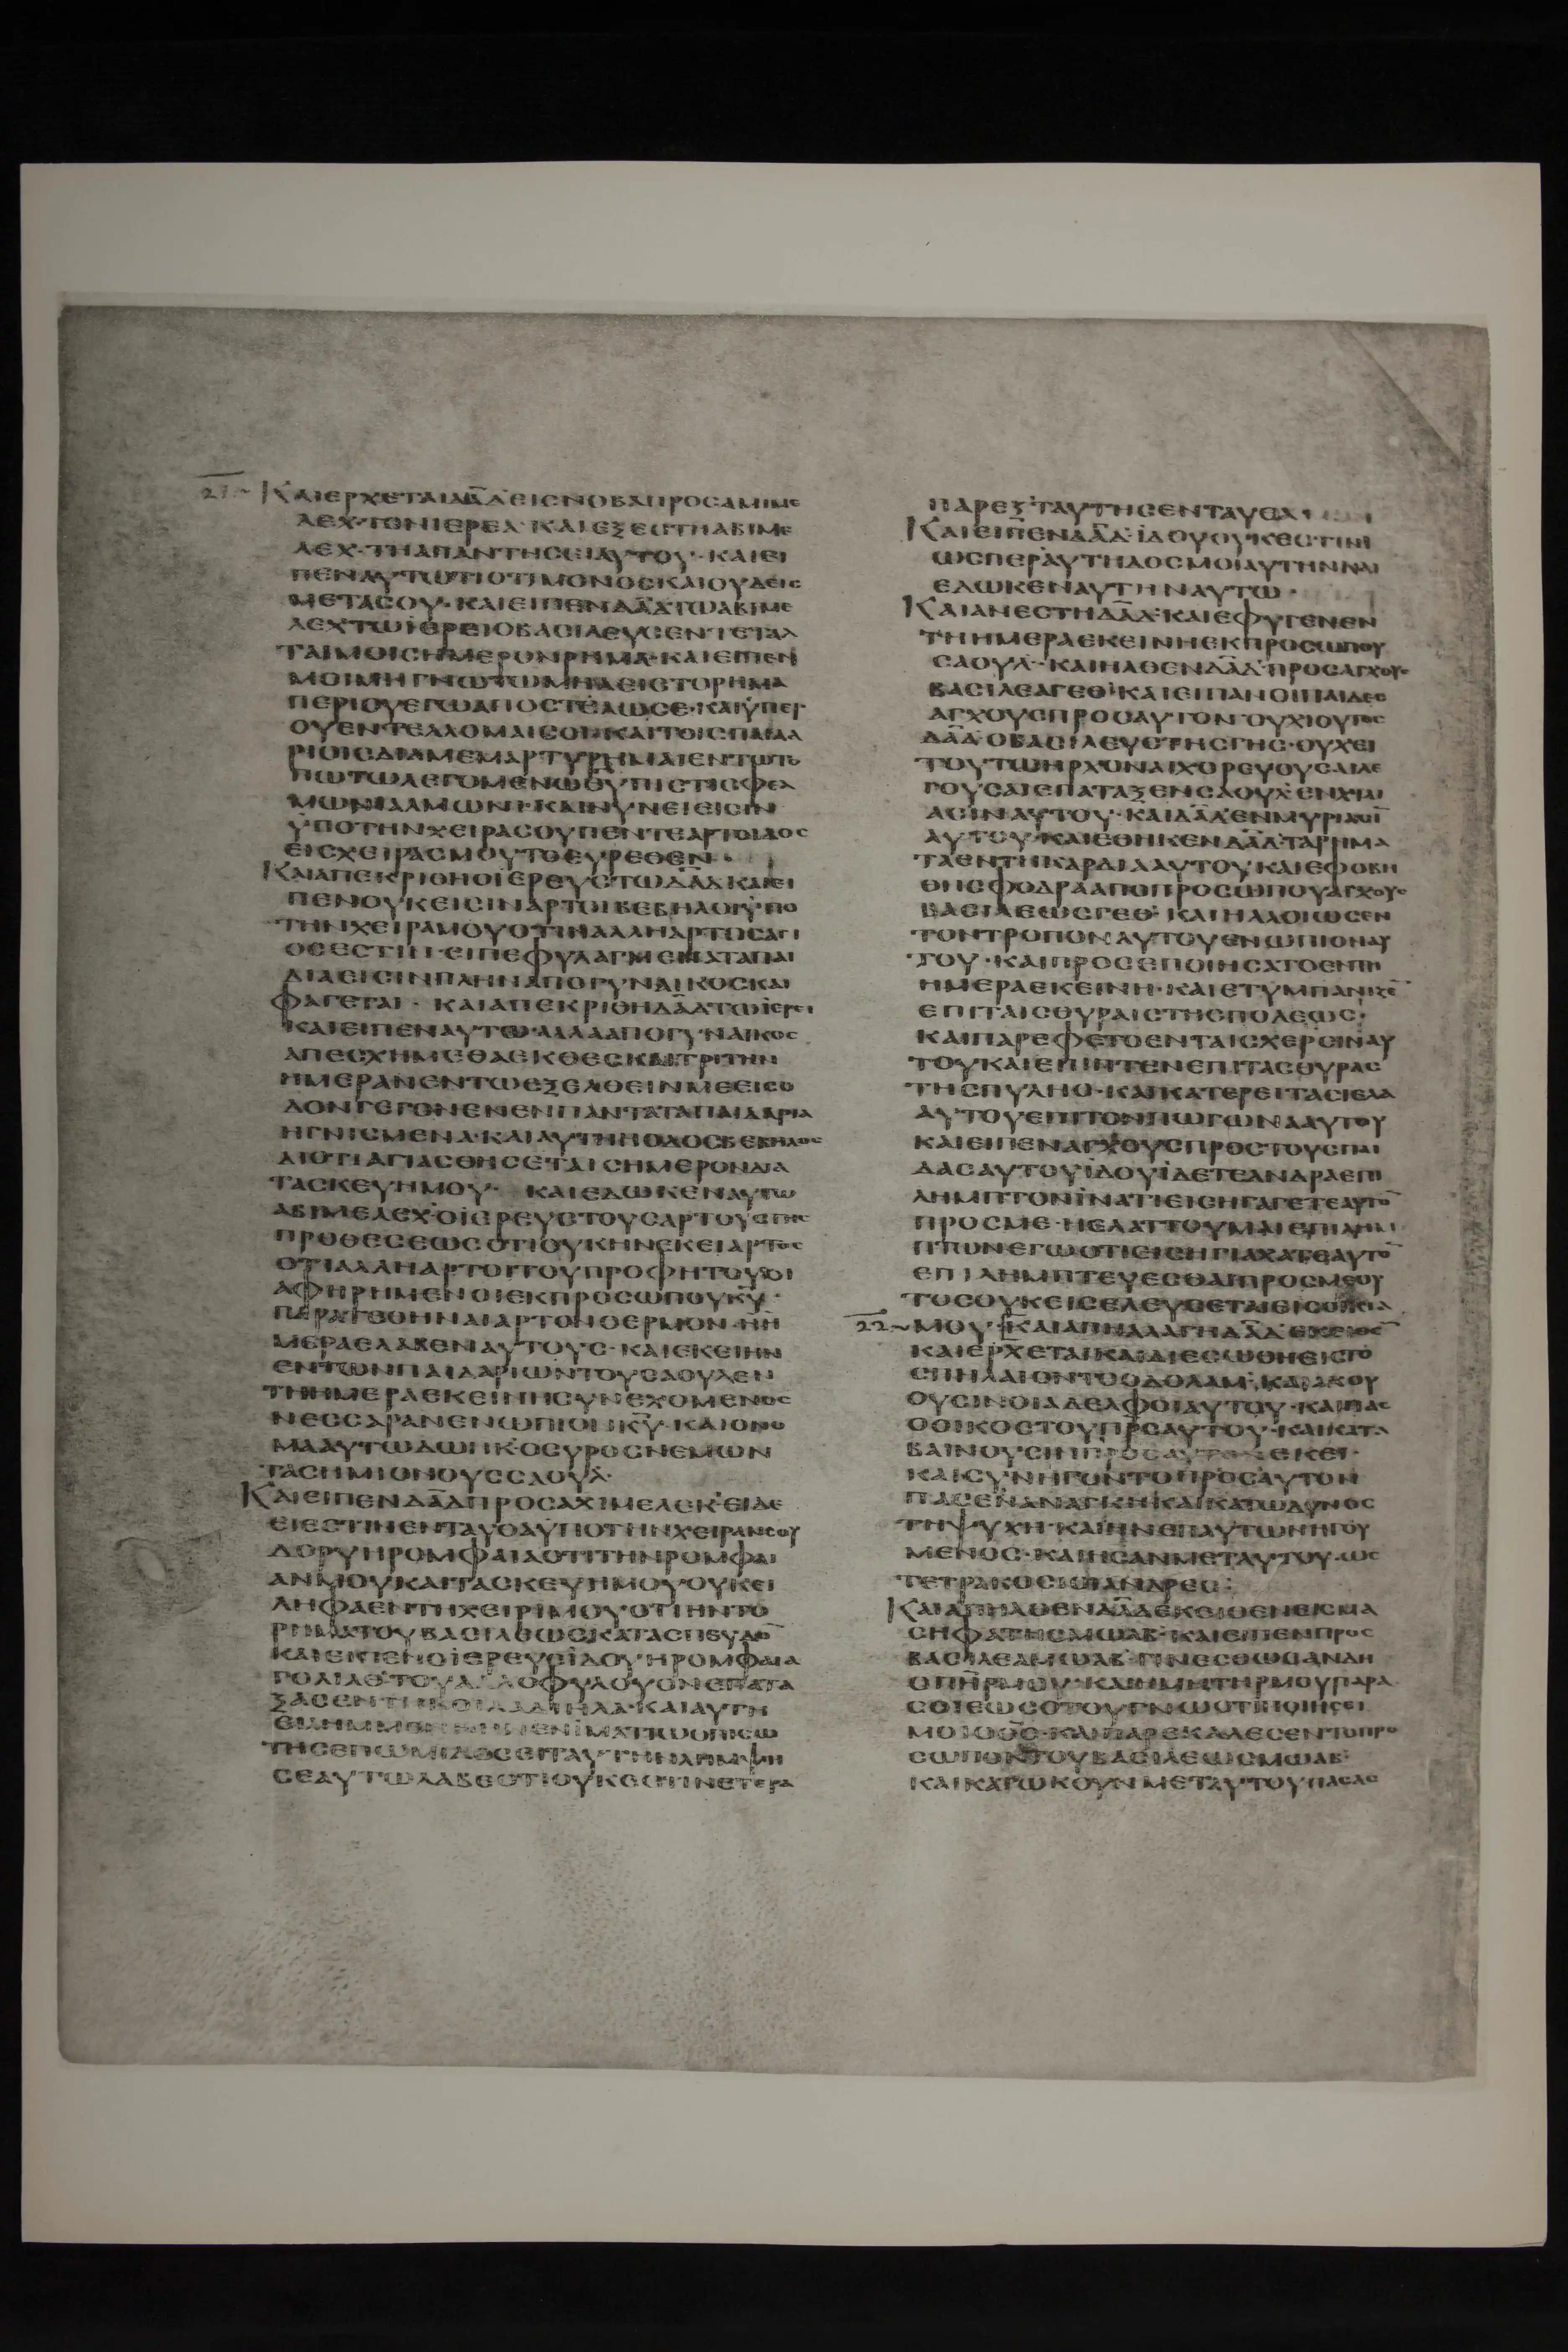 21~ ΚΑΙΕΡΧΕΤΑΙΔΑΔ̅ΕΙΣΝΟΒΑΠΡΟΣΑΜΙΜΕ
ΛΕΧ·ΤΟΝΙΕΡΕΑ·ΚΑΙΕΞΕΣΤΗΑΒΙΜΕ
ΛΕΧ·ΤΗΑΠΑΝΤΗΣΕΙΑΥΤΟΥ·ΚΑΙΕΙ
ΠΕΝΑΥΤΩΤΙΟΤΙΜΟΝΟΣΚΑΙΟΥΔΕΙΣ
ΜΕΤΑΣΟΥ·ΚΑΙΕΙΠΕΝΔΑΔ̅ΤΩΑΒΙΜΕ
ΛΕΧΤΩΪΕΡΕΙΟΒΑΣΙΛΕΥΣΕΝΤΕΤΑΛ
ΤΑΙΜΟΙΣΗΜΕΡΟΝΡΗΜΑ·ΚΑΙΕΙΠΕΝ
ΜΟΙΜΗΓΝΩΤΩΜΗΔΕΙΣΤΟΡΗΜΑ
ΠΕΡΙΟΥΕΓΩΑΠΟΣΤΕΛΩΣΕ·ΚΑΙΫΠΕΡ
ΟΥΕΝΤΕΛΛΟΜΑΙΣΟΙ·ΚΑΙΤΟΙΣΠΑΙΔΑ
ΡΙΟΙΣΔΙΑΜΕΜΑΡΤΥΡΗΜΑΙΕΝΤΩΤΟ
ΠΩΤΩΛΕΓΟΜΕΝΩΘΥ̅ΠΙΣΤΙΣΦΕΛ
ΜΩΝΙΑΛΜΩΝΙ·ΚΑΙΝΥΝΕΙΕΙΣΙΝ
ΫΠΟΤΗΝΧΕΙΡΑΣΟΥΠΕΝΤΕΑΡΤΟΙΔΟΣ
ΕΙΣΧΕΙΡΑΣΜΟΥΤΟΕΥΡΕΘΕΝ·
ΚΑΙΑΠΕΚΡΙΘΗΟΪΕΡΕΥΣΤΩΔΑΔ̅ΚΑΙΕΙ
ΠΕΝΟΥΚΕΙΣΙΝΑΡΤΟΙΒΕΒΗΛΟΙΫΠΟ
ΤΗΝΧΕΙΡΑΜΟΥΟΤΙΗΑΛΛΗΑΡΤΟΣΑΓΙ
ΟΣΕΣΤΙΝ·ΕΙΠΕΦΥΛΑΓΜΕΝΑΤΑΠΑΙ
ΔΙΑΕΙΣΙΝΠΛΗΝΑΠΟΓΥΝΑΙΚΟΣΚΑΙ
ΦΑΓΕΤΑΙ· ΚΑΙΑΠΕΚΡΙΘΗΔΑΔ̅ΤΩΪΕΡΕΙ
ΚΑΙΕΙΠΕΝΑΥΤΩ·ΑΛΛΑΑΠΟΓΥΝΑΙΚΟΣ
ΑΠΕΣΧΗΜΕΘΑΕΚΘΕΣΚΑΙΤΡΙΤΗΝ
ΗΜΕΡΑΝΕΝΤΩΕΞΕΛΘΕΙΝΜΕΕΙΣΟ
ΔΟΝΓΕΓΟΝΕΝΕΝΠΑΝΤΑΤΑΠΑΙΔΑΡΙΑ
ΗΓΝΙΣΜΕΝΑ·ΚΑΙΑΥΤΗΗΟΔΟΣΒΕΒΗΛΟΣ
ΔΙΟΤΙΑΓΙΑΣΘΗΣΕΤΑΙΣΗΜΕΡΟΝΔΙΑ
ΤΑΣΚΕΥΗΜΟΥ· ΚΑΙΕΔΩΚΕΝΑΥΤΩ
ΑΒΙΜΕΛΕΧ·ΟΪΕΡΕΥΣΤΟΥΣΑΡΤΟΥΣΤΗΣ
ΠΡΟΘΕΣΕΩΣΟΤΙΟΥΚΗΝΕΚΕΙΑΡΤΟΣ
ΟΤΙΑΛΛΗΑΡΤΟΙΤΟΥΠΡΟΦΗΤΟΥΟΙ
ΑΦΗΡΗΜΕΝΟΙΕΚΠΡΟΣΩΠΟΥΚΥ̅·
ΠΑΡΑΤΕΘΗΝΑΙΑΡΤΟΝΘΕΡΜΟΝ·ΗΗ
ΜΕΡΑΕΛΑΒΕΝΑΥΤΟΥΣ·ΚΑΙΕΚΕΙΗΝ
ΕΝΤΩΝΠΑΙΔΑΡΙΩΝΤΟΥΣΑΟΥΛΕΝ
ΤΗΗΜΕΡΑΕΚΕΙΝΗΣΥΝΕΧΟΜΕΝΟΣ
ΝΕΣΣΑΡΑΝΕΝΩΠΙΟΝΚΥ̅·ΚΑΙΟΝΟ
ΜΑΑΥΤΩΔΩΗΚ·ΟΣΥΡΟΣΝΕΜΩΝ
ΤΑΣΗΜΙΟΝΟΥΣΣΑΟΥΛ·
ΚΑΙΕΙΠΕΝΔΑΔ̅ΠΡΟΣΑΧΙΜΕΛΕΚ·ΕΙΔΕ
ΕΙΕΣΤΙΝΕΝΤΑΥΘΑΫΠΟΤΗΝΧΕΙΡΑΝΣΟΥ
ΔΟΡΥΗΡΟΜΦΑΙΑΟΤΙΤΗΝΡΟΜΦΑΙ
ΑΝΜΟΥΚΑΙΤΑΣΚΕΥΗΜΟΥΟΥΚΕΙ
ΛΗΦΑΕΝΤΗΧΕΙΡΙΜΟΥΟΤΙΗΝΤΟ
ΡΗΜΑΤΟΥΒΑΣΙΛΕΩΣΚΑΤΑΣΠΕΥΔΟ̅
ΚΑΙΕΙΠΕΝΟΪΕΡΕΥΣΪΔΟΥΗΡΟΜΦΑΙΑ
ΓΟΛΙΑΘ·ΤΟΥΑΛΛΟΦΥΛΟΥΟΝΕΠΑΤΑ
ΞΑΣΕΝΤΗΚΟΙΛΑΔΙΗΛΑ·ΚΑΙΑΥΤΗ
ΤΗΣΕΠΩΜΙΔΟΣΕΙΤΑΥΤΗΝΛΗΜΨΗ
ΣΕΑΥΤΩΛΑΒΕΟΤΙΟΥΚΕΣΤΙΝΕΤΕΡΑ
ΠΑΡΕΞΤΑΥΤΗΣΕΝΤΑΥΘΑ
ΚΑΙΕΙΠΕΝΔΑΔ̅·ΙΔΟΥΟΥΚΕΣΤΙΝ
ΩΣΠΕΡΑΥΤΗΔΟΣΜΟΙΑΥΤΗΝΚΑΙ
ΕΔΩΚΕΝΑΥΤΗΝΑΥΤΩ·
ΚΑΙΑΝΕΣΤΗΔΑΔ̅·ΚΑΙΕΦΥΓΕΝΕΝ
ΤΗΗΜΕΡΑΕΚΕΙΝΗΕΚΠΡΟΣΩΠΟΥ
ΣΑΟΥΛ·ΚΑΙΗΛΘΕΝΔΑΔ̅·ΠΡΟΣΑΓΧΟΥΣ
ΒΑΣΙΛΕΑΓΕΘ·ΚΑΙΕΙΠΑΝΟΙΠΑΙΔΕΣ
ΑΓΧΟΥΣΠΡΟΣΑΥΤΟΝ·ΟΥΧΙΟΥΤΟΣ
ΔΑΔ̅·ΟΒΑΣΙΛΕΥΣΤΗΣΓΗΣ·ΟΥΧΕΙ
ΤΟΥΤΩΗΡΧΟΝΑΙΧΟΡΕΥΟΥΣΑΙΛΕ
ΓΟΥΣΑΙΕΠΑΤΑΞΕΝΣΑΟΥΛΕΝΧΙΛΙ
ΑΣΙΝΑΥΤΟΥ·ΚΑΙΔΑΔ̅·ΕΝΜΥΡΙΑΣΙ̅
ΑΥΤΟΥ·ΚΑΙΕΘΗΚΕΝΔΑΔ̅·ΤΑΡΗΜΑ
ΤΑΕΝΤΗΚΑΡΔΙΑΑΥΤΟΥΚΑΙΕΦΟΒΗ
ΘΗΣΦΟΔΡΑΑΠΟΠΡΟΣΩΠΟΥΑΓΧΟΥΣ
ΒΑΣΙΛΕΩΣΓΕΘ·ΚΑΙΗΛΛΟΙΩΣΕΝ
ΤΟΝΤΡΟΠΟΝΑΥΤΟΥΕΝΩΠΙΟΝΑΥ
ΤΟΥ·ΚΑΙΠΡΟΣΕΠΟΙΗΣΑΤΟΕΝΤΗ
ΗΜΕΡΑΕΚΕΙΝΗ·ΚΑΙΕΤΥΜΠΑΝΙΖΕ̅
ΕΠΙΤΑΙΣΘΥΡΑΙΣΤΗΣΠΟΛΕΩΣ·
ΚΑΙΠΑΡΕΦΕΤΟΕΝΤΑΙΣΧΕΡΣΙΝΑΥ
ΤΟΥΚΑΙΕΠΙΠΤΕΝΕΠΙΤΑΣΘΥΡΑΣ
ΤΗΣΠΥΛΗΣ·ΚΑΙΚΑΤΕΡΕΙΤΑΣΙΕΛΑ
ΑΥΤΟΥΕΠΙΤΟΝΠΩΓΩΝΑΑΥΤΟΥ
ΚΑΙΕΙΠΕΝΑΓΧΟΥΣΠΡΟΣΤΟΥΣΠΑΙ
ΔΑΣΑΥΤΟΥΪΔΟΥΪΔΕΤΕΑΝΔΡΑΕΠΙ
ΛΗΜΠΤΟΝΪΝΑΤΙΕΙΣΗΓΑΓΕΤΕΑΥΤΟ̅
ΠΡΟΣΜΕ·ΗΕΛΑΤΤΟΥΜΑΙΕΠΙΛΗΜ
ΠΤΩΝΕΓΩΟΤΙΕΙΣΗΓΙΑΧΑΤΕΑΥΤΟ̅
ΕΠΙΛΗΜΠΤΕΥΕΣΘΑΙΠΡΟΣΜΕΟΥ
ΤΟΣΟΥΚΕΙΣΕΛΕΥΣΕΤΑΙΕΙΣΟΙΚΙΑ
22~ ΜΟΥ·ΚΑΙΑΠΗΛΛΑΓΗΔΑΔ̅·ΕΚΕΙΘΕ̅
ΚΑΙΕΡΧΕΤΑΙΚΑΙΔΙΕΣΩΘΗΕΙΣΤΟ
ΣΠΗΛΑΙΟΝΤΟΟΔΟΛΑΜ·ΚΑΙΑΚΟΥ
ΟΥΣΙΝΟΙΑΔΕΛΦΟΙΑΥΤΟΥ·ΚΑΙΠΑΣ
ΟΟΙΚΟΣΤΟΥΠΡΣ̅ΑΥΤΟΥ·ΚΑΙΚΑΤΑ
ΒΑΙΝΟΥΣΙΝΠΡΟΣΑΥΤΟΝΕΚΕΙ·
ΚΑΙΣΥΝΗΓΟΝΤΟΠΡΟΣΑΥΤΟΝ
ΠΑΣΕΝΑΝΑΓΚΗΚΑΙΚΑΤΩΔΥΝΟΣ
ΤΗΨΥΧΗ·ΚΑΙΗΝΕΠΑΥΤΩΝΗΓΟΥ
ΜΕΝΟΣ·ΚΑΙΗΣΑΝΜΕΤΑΥΤΟΥ·ΩΣ
ΤΕΤΡΑΚΟΣΙΟΙΑΝΔΡΕΣ:
ΚΑΙΑΠΗΛΘΕΝΔΑΔ̅ΕΚΕΙΘΕΝΕΙΣΜΑ
ΣΗΦΑΤΗΣΜΩΑΒ·ΚΑΙΕΙΠΕΝΠΡΟΣ
ΒΑΣΙΛΕΑΜΩΑΒ·ΓΙΝΕΣΘΩΣΑΝΔΗ
ΟΠΗΡ̅ΜΟΥ·ΚΑΙΗΜΗΤΗΡΜΟΥΠΑΡΑ
ΣΟΙΕΩΣΟΤΟΥΓΝΩΟΤΙΠΟΙΗΣΕΙ
ΜΟΙΟΘΣ̅·ΚΑΙΠΑΡΕΚΑΛΕΣΕΝΤΟΠΡΟ
ΣΩΠΟΝΤΟΥΒΑΣΙΛΕΩΣΜΩΑΒ·
ΚΑΙΚΑΤΩΚΟΥΝΜΕΤΑΥΤΟΥΠΑΣΑΣ